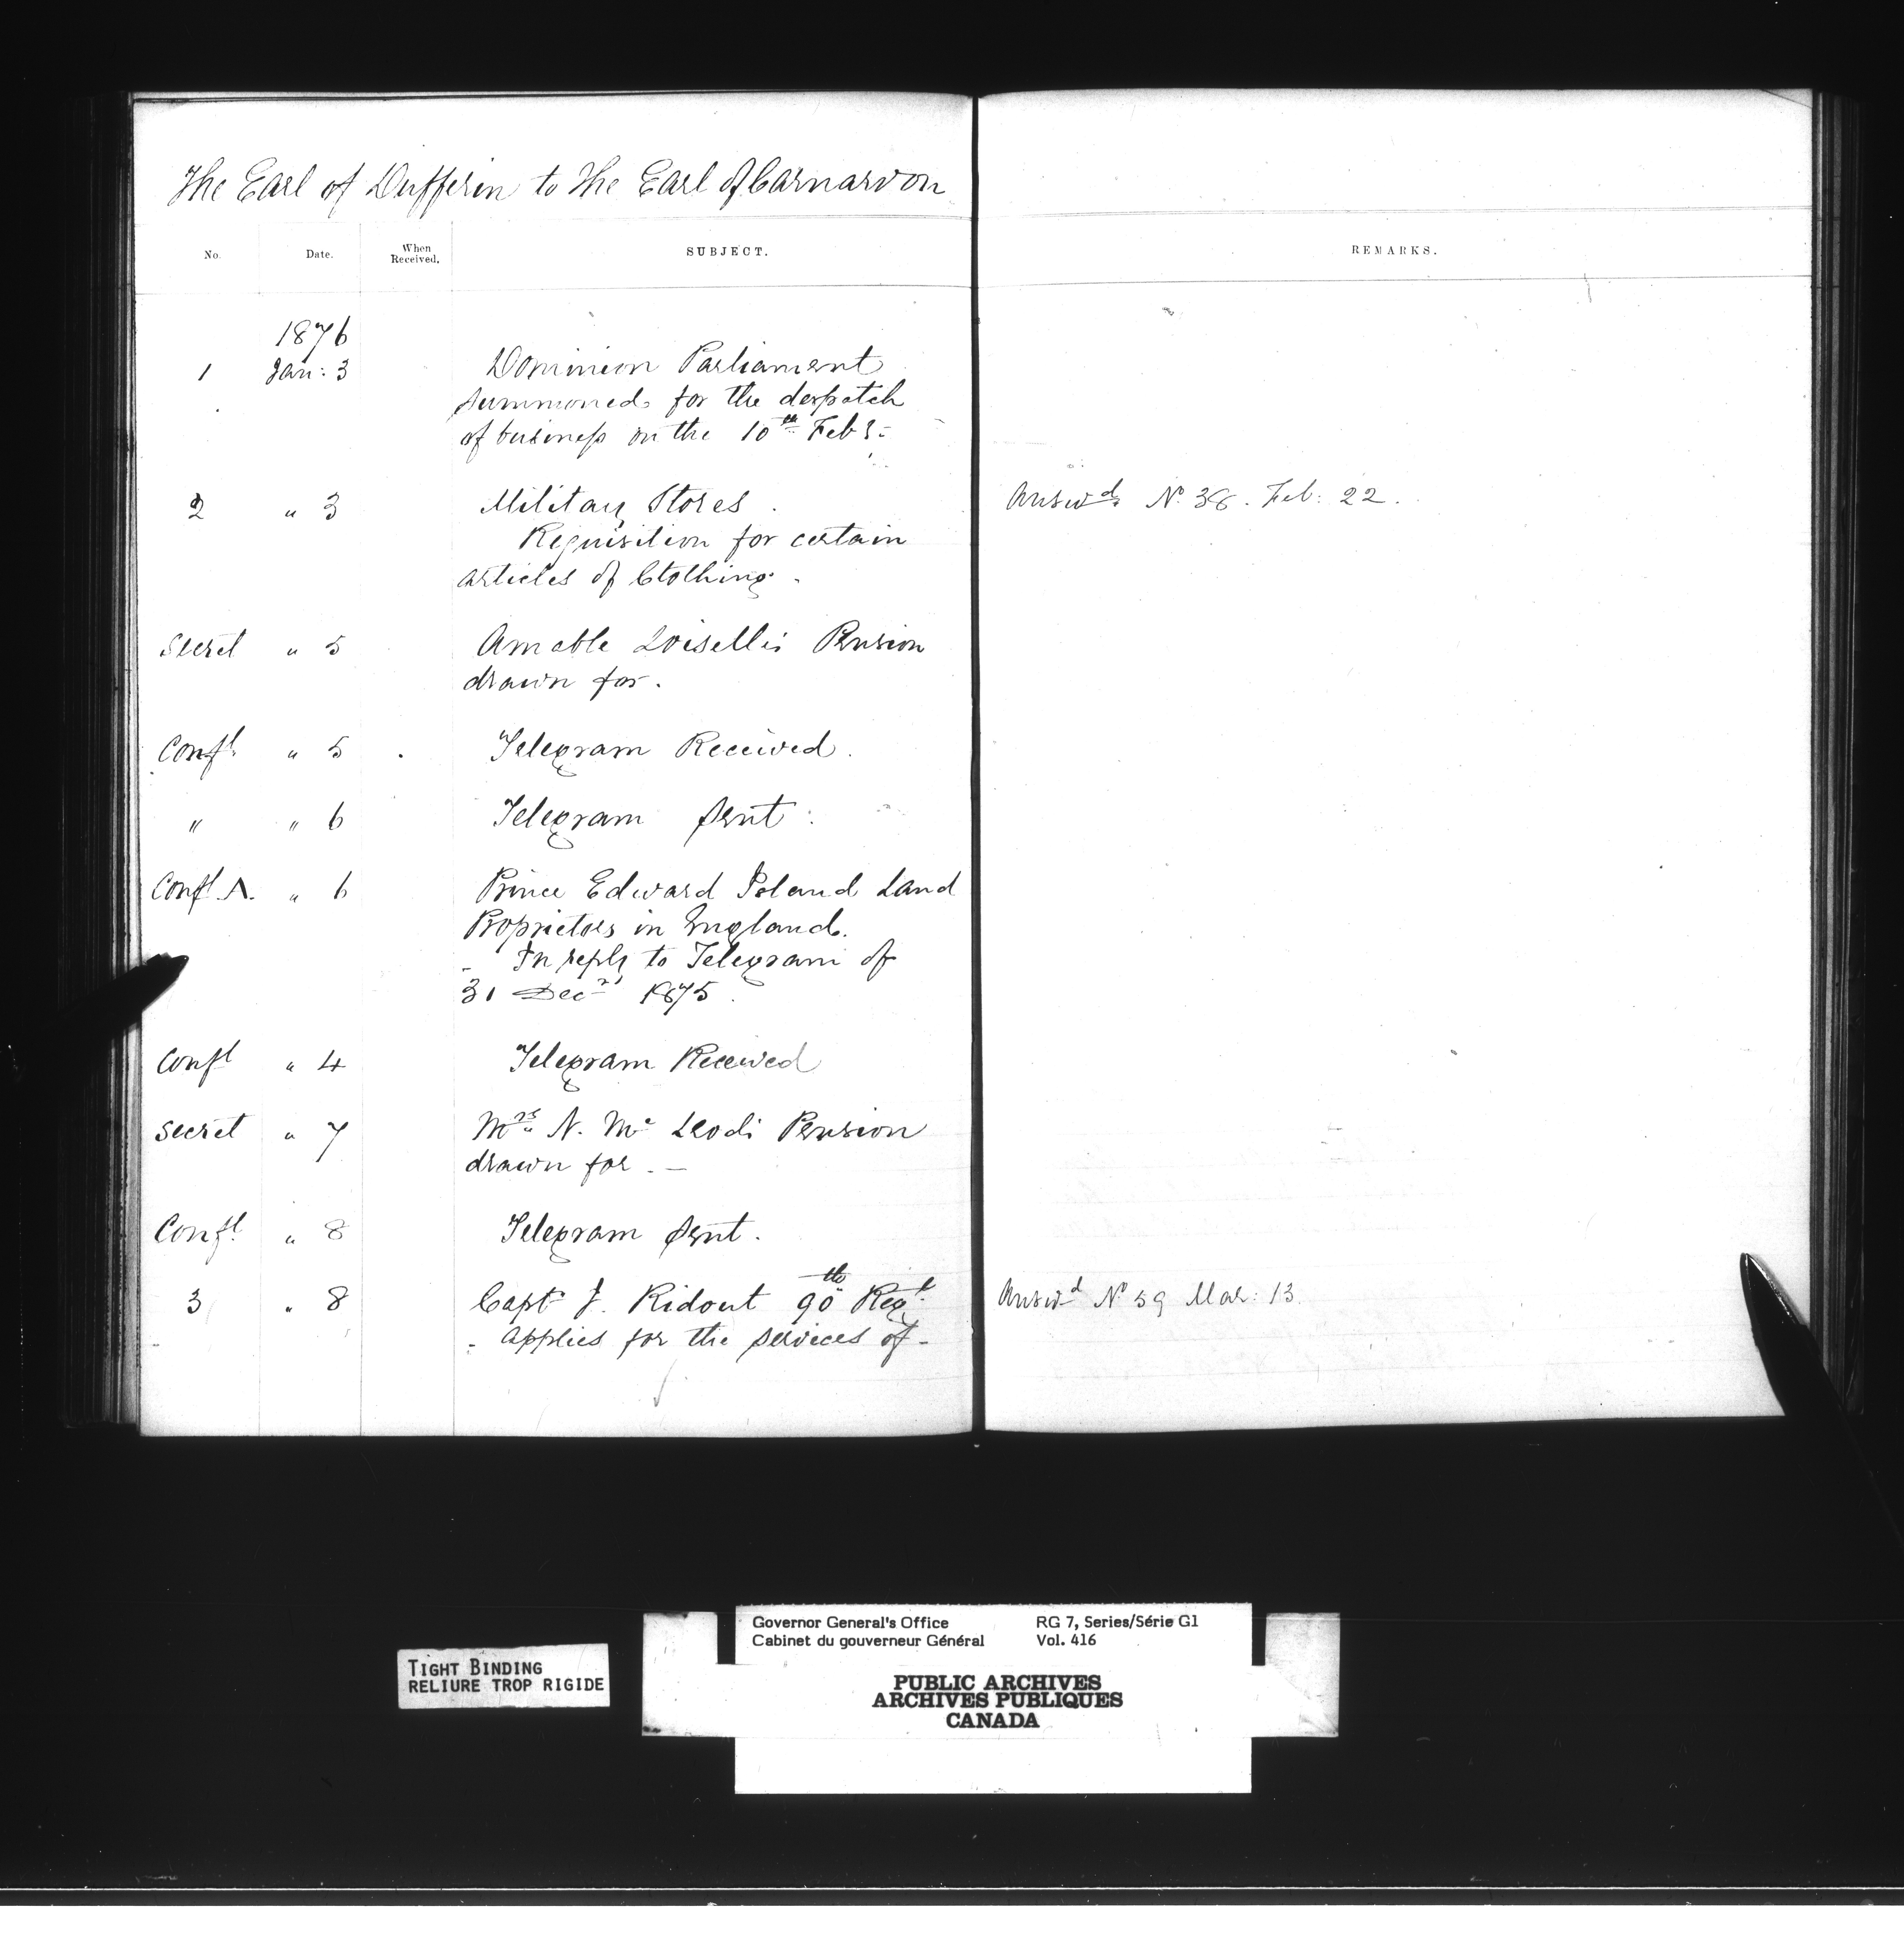 The Earl of Dufferin to The Earl of Carnarvon
No. Date. When Received. SUBJECT. REMARKS.
1876
1 Jan: 3 Dominion Parliament
summoned for the despatch
of business on the 10th Feby:
2 " 3 Military Stores. Answd. No. 38. Feb: 22.
Requisition for certain
articles of Clothing.
Secret " 5 Amable Loiselle's Pension
drawn for.
Confl. " 5 Telegram Received.
" " 6 Telegram Sent.
Confl A. " 6 Prince Edward Island Land
Proprietors in England.
In reply to Telegram of
31 Decr 1875.
Confl " 4 Telegram Received
Secret " 7 Mrs N. Mc Leod's Pension
drawn for. —
Confl. " 8 Telegram Sent.
3 " 8 Capt. J. Ridout 90th Regt. Answd No 59 Mar: 13.
Applies for the services of -
TIGHT BINDING
RELIURE TROP RIGIDE
Governor General's Office RG 7, Series/Série G1
Cabinet du gouverneur Général Vol. 416
PUBLIC ARCHIVES
ARCHIVES PUBLIQUES
CANADA